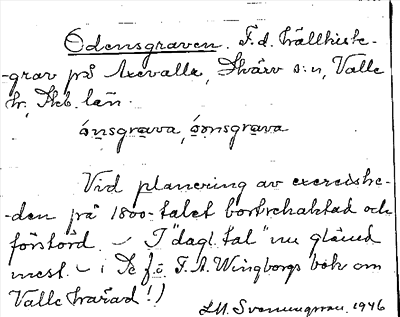 Odensgraven. F.d. hällkiste-
-grav på Axevalla, Skärv s:n, Valle
hd, Skb. län.
ónsgrava, óonsgrava
Vid planering av exercishe-
-den på 1800-talet bortschaktad och
förstörd. – I "dagl. tal" nu glömd
mest. – i Se f.ö. F.A. Wingborgs bok om
Valle härad!)
L.M. Svenungsson, 1946